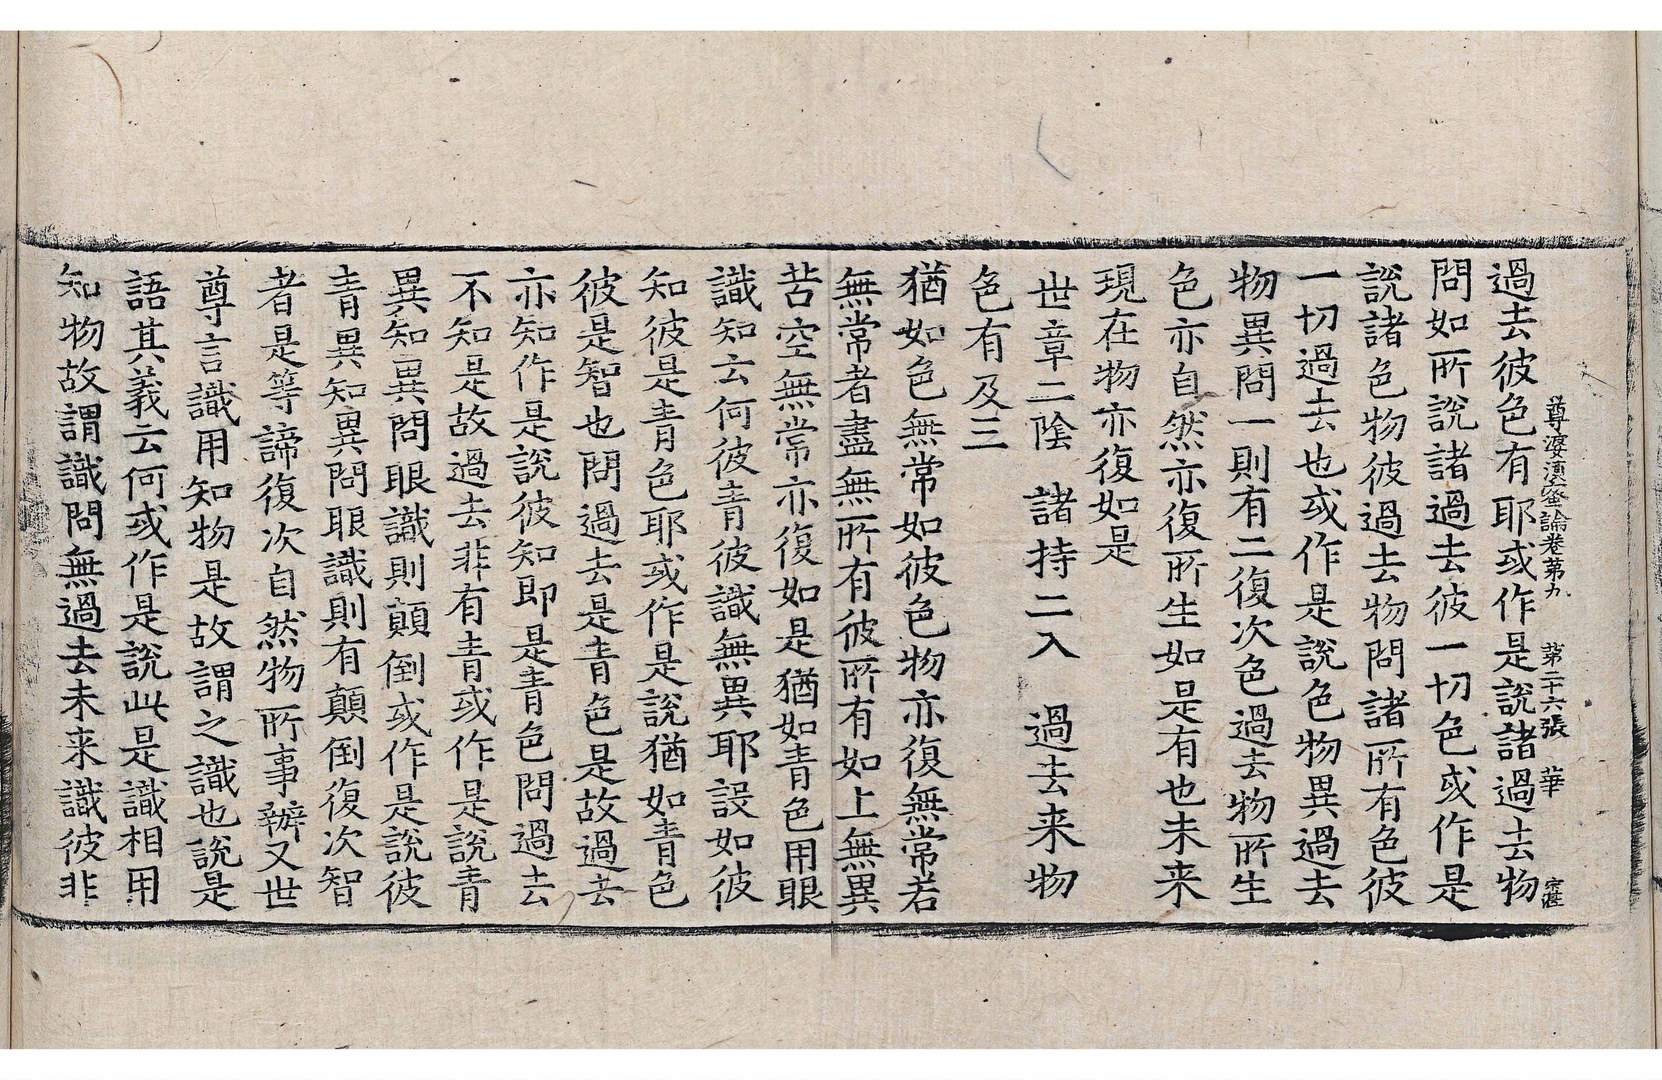 尊婆湏蜜論卷第九 第二十六張 華
過去彼色有耶或作是說諸過去物
問如所說諸過去彼一切色或作是
說諸色物彼過去物問諸所有色彼
一切過去也或作是說色物異過去
物異問一則有二復次色過去物所生
色亦自然亦復所生如是有也未来
現在物亦復如是
世章二陰 諸持二入 過去来物
色有及三
猶如色無常如彼色物亦復無常若
無常者盡無所有彼所有如上無異
苦空無常亦復如是猶如青色用眼
識知云何彼青彼識無異耶設如彼
知彼是青色耶或作是說猶如青色
彼是智也問過去是青色是故過去
亦知作是說彼知即是青色問過去
不知是故過去非有青或作是說青
異知異問眼識則顛倒或作是說彼
青異知異問眼識則有顛倒復次智
者是等諦復次自然物所事辦又世
尊言識用知物是故謂之識也說是
語其義云何或作是說此是識相用
知物故謂識問無過去未来識彼非